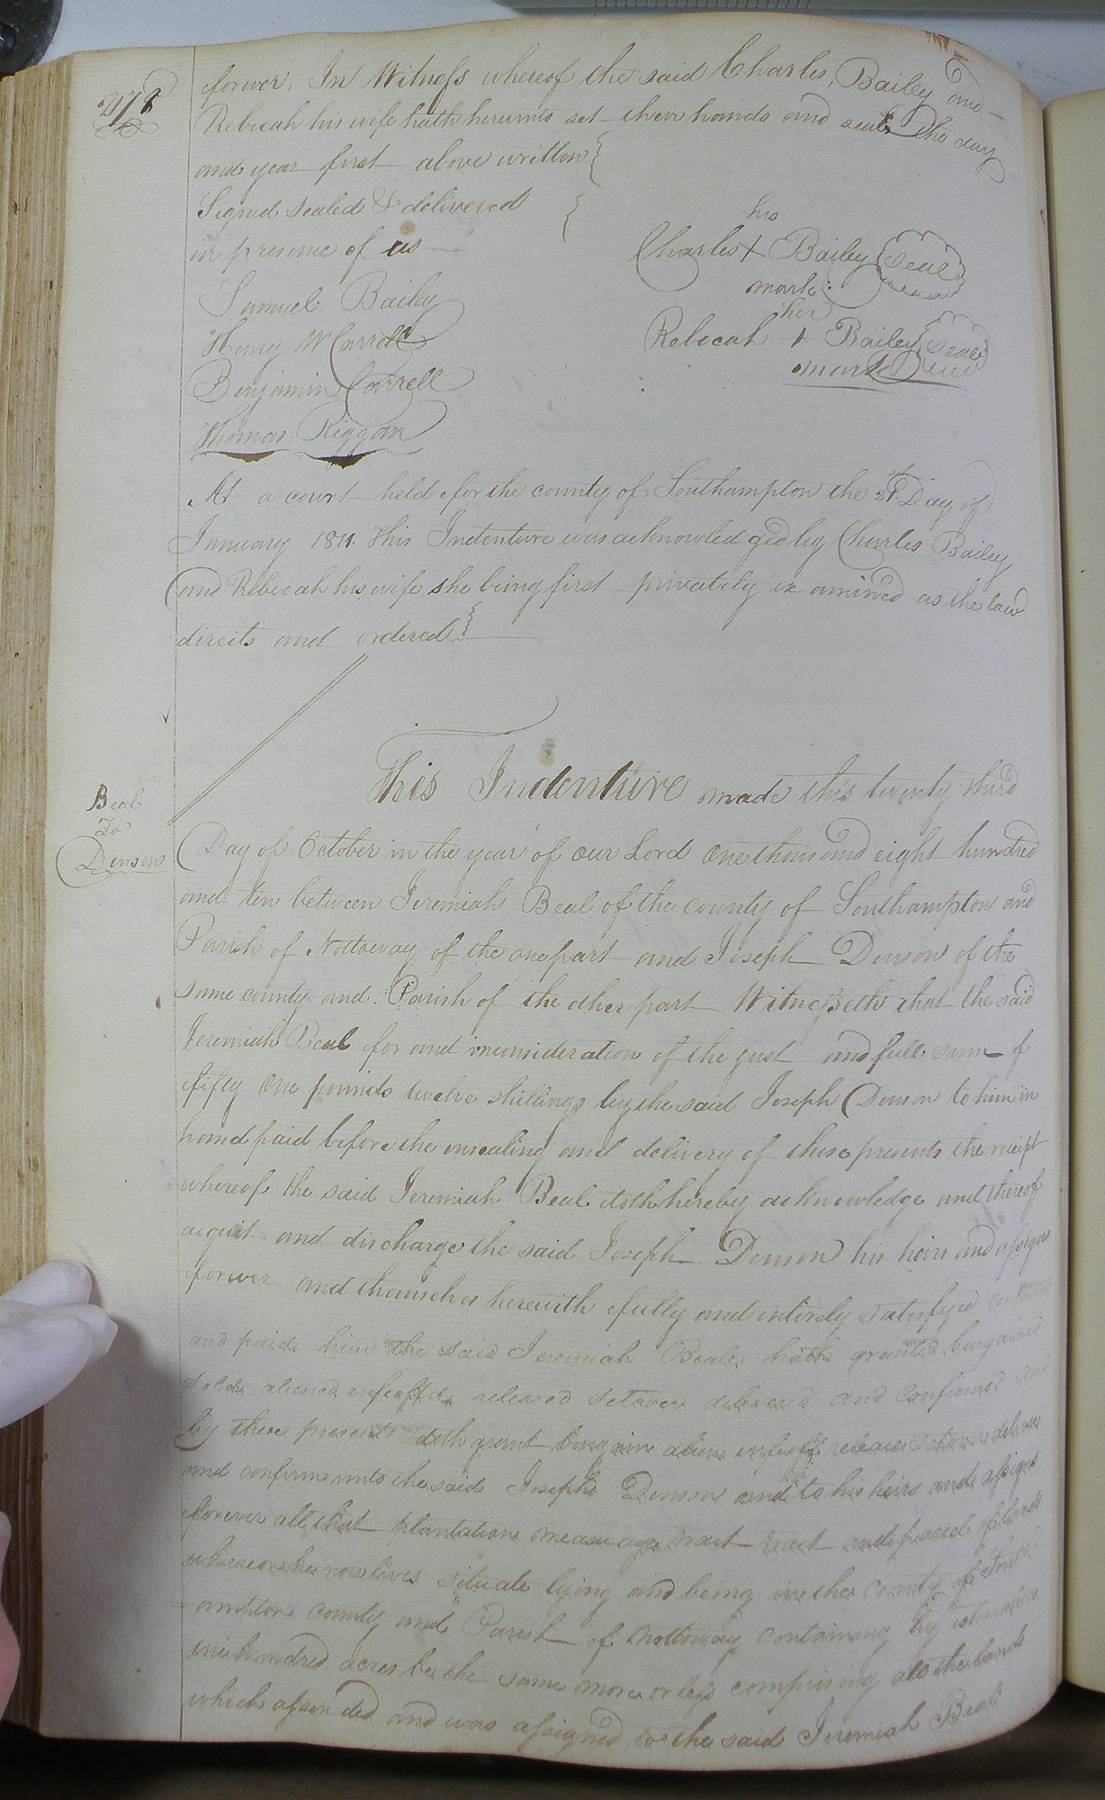 278
forever. In Witness whereof the said Charles Bailey and
Rebecah his wife hath hereunto set their hands and seals the day
and year first above written
Signed sealed & delivered
in presence of us
his
Charles + Bailey Seal
mark
her
Rebecah + Bailey Seal
mark
Samuel Bailey
Henry W Carrell
Benjamin Carrell
Thomas Riggan
At a court held for the county of Southampton the 21st Day of
January 1811. This Indenture was acknowledged by Charles Bailey
and Rebecah his wife she being first privately examined as the law
directs and ordered
Beal
To
Denson
This Indenture made this twenty third
Day of October in the year of our Lord one thousand eight hundred
and ten between Jeremiah Beal of the county of Southampton and
Parish of Nottoway of the one part and Joseph Denson of the
same county and Parish of the other part Witnesseth that the said
Jeremiah Beal for and inconsideration of the just and full sum of
fifty one pounds twelve shillings by the said Joseph Denson to him in
hand paid before the ensealing and delivery of these presents the receipt
whereof the said Jeremiah Beal doth hereby acknowledge and thereof
acquit and discharge the said Joseph Denson his heirs and assigns
forever and themselves herewith fully and entirely satisfyed contented
and paide him the said Jeremiah Beale hath granted bargained
solde aliened enfeoffde released setover delivered and confirmed and
by these presents doth grant bargain aliene enfeoff release setover deliver
and confirm unto the said Joseph Denson and to his heirs and assigns
forever all that plantation messuage tract and parcel of land
whereon he now lives situate lying and being in the County of South
ampton county and Parish of Nottoway containing by estimation
one hundred acres be the same more or less comprising all the lands
which and was assigned to the said Jeremiah Beal